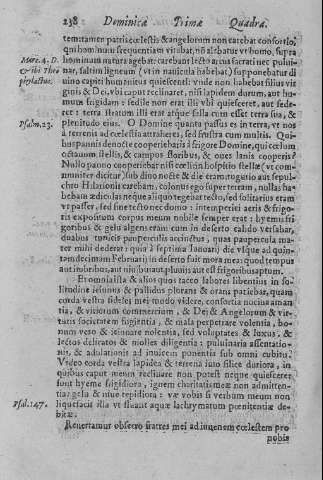 238 Dominicæ Primæ Quadra.
temitamen patris cœlestis & angelorum non carebat consortio,
qui hominum frequentiam vitabat, nō alebatur vt homo, supra
Marc. 4. D. hominam natura agebat: carebant lecto
& ibi Theo nar, saltim ligneum (vt in nauicula habebat) supponebatur di
phylactus. uino capiti humeriusque cœnitæ: vnde non habebat filius vir
ginis & Dei, vbi caput reclinaret, nisi lapidem durum, aut hu-
mum frigidam: sedile non erat illi vbi quiesceret, aut sede-
ret: terra stratum illi erat atque sella cum esset terra sua, &
Psalm. 23. plenitudo eius. O Domine quanta passus es in terra, vt nos
à terrenis ad cœlestia attraheres, sed frustra cum multis. Qui-
bus pannis de nocte cooperiebaris à frigore Domine, qui cœlum
octauum stellis, & campos floribus, & oues lanis cooperis?
Nullo panno cooperiebaris, sed
municiter dicitur) sub diuo nocte & die eram
chro Hilarionis carebam, colonus ego super terram, nullas ha-
bebam ædiculas neque aliquo tegebar tecto, sed solitarius etam
vt passer, sed sine tecto nec domo: intemperiei aeris & frigo-
ris expositum corpus meum nobile semper erat: hyemis fri
goribus & gelu algens eram cum in deserto calido versabar,
duabus tunicis pauperculis amictus, quas paupercula ma-
ter mihi dederat: quia à septima Ianuarij die vsque ad quin-
tamdecimam Februarij in deserto fuit mora mea: quod tempus
aut imbribus, aut niuibus aut pluuiis aut est frigoribus aptum.
Et omnia ista & alios quos taceo labores libentius in so-
litudine ieiunus & pallidus plorans & orans patiebar, quam
corda vestra fideles mei modo videre, consortia nocius aman
tia, & vitiorum commercium, & Dei & Angelorum & vir-
tutis societatem fugientia, & mala perpetrare volentia, bo-
num vero & ieiunare nolentia, sed voluptates & luxus, &
lectos delicatos & molles diligentia: puluinaria assentatio-
nis, & adulationis ad inuicem ponentia sub omni cubitu.
Video corda vestra lapidea & terrena imo silice duriora, in
quibus caput meum reclinare non potest neque quiescere:
sunt hyeme frigidiora, ignem charitatis meæ non admitten-
tia: gelu & niue tepidiora: væ vobis si verbum meum non
Psal. 147. liquefacis illa vt fluant aquæ lachrymarum pœnitentiæ de-
bitæ.
Reuertamur obsecro fratres mei ad iuuenem cœlestem pro
nobis